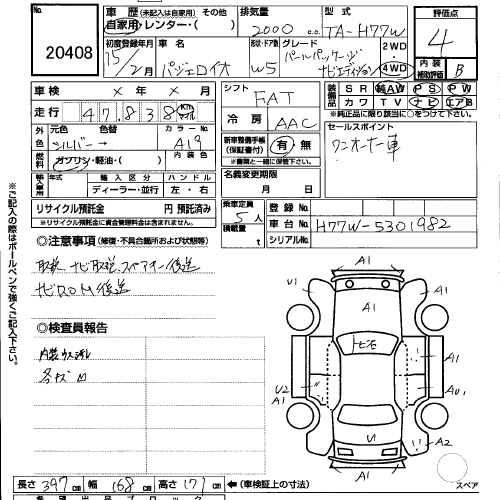 No. 20408
車歴（未記入は自家用） その他
自家用・レンター・（ ）
排気量
2000 c.c.
型式
TA-H77W
評価点
4
初度登録年月
15年2月
車名
パジェロイオ
形状・ドア数
W5
グレード
パールパッケージ
ナビエディション
2WD
4WD
内装
補助評価
B
車検 × 年 × 月
走行 47,838 Km マイル
外色
元色 色替 カラーNo.
シルバー→ A19
燃料
ガソリン・軽油・( )
内装色
シフト
FAT
冷房
AAC
装備品
SR AW PS PW
カワ TV ナビ エアB
※純正品に限り該当に○をつけて下さい。
セールスポイント
ワンオーナー車
新車整備手帳
（保証書付）
有・無
※書類と一緒に保管して下さい。
輸入車用
年式 輸入区分 ハンドル
年 ディーラー・並行 左・右
名義変更期限
月 日
リサイクル預託金 円 預託済み
※リサイクル預託金に資金管理料金は含まれません。
乗車定員
5人
積載量
t
登録No.
車台No. H77W-5301982
シリアルNo.
◎注意事項（修復・不具合箇所および状態等）
取説、ナビ取説、スペアキー後送
ナビROM後送
◎検査員報告
内装ウスヨゴレ
冬タズ
※ご記入の際はボールペンで強くご記入下さい。
A1
U1
A1
A1
U2
A1
A1
U1
A2
A1
スペア
長さ 397 cm 幅 168 cm 高さ 171 cm ←（車検証上の寸法）